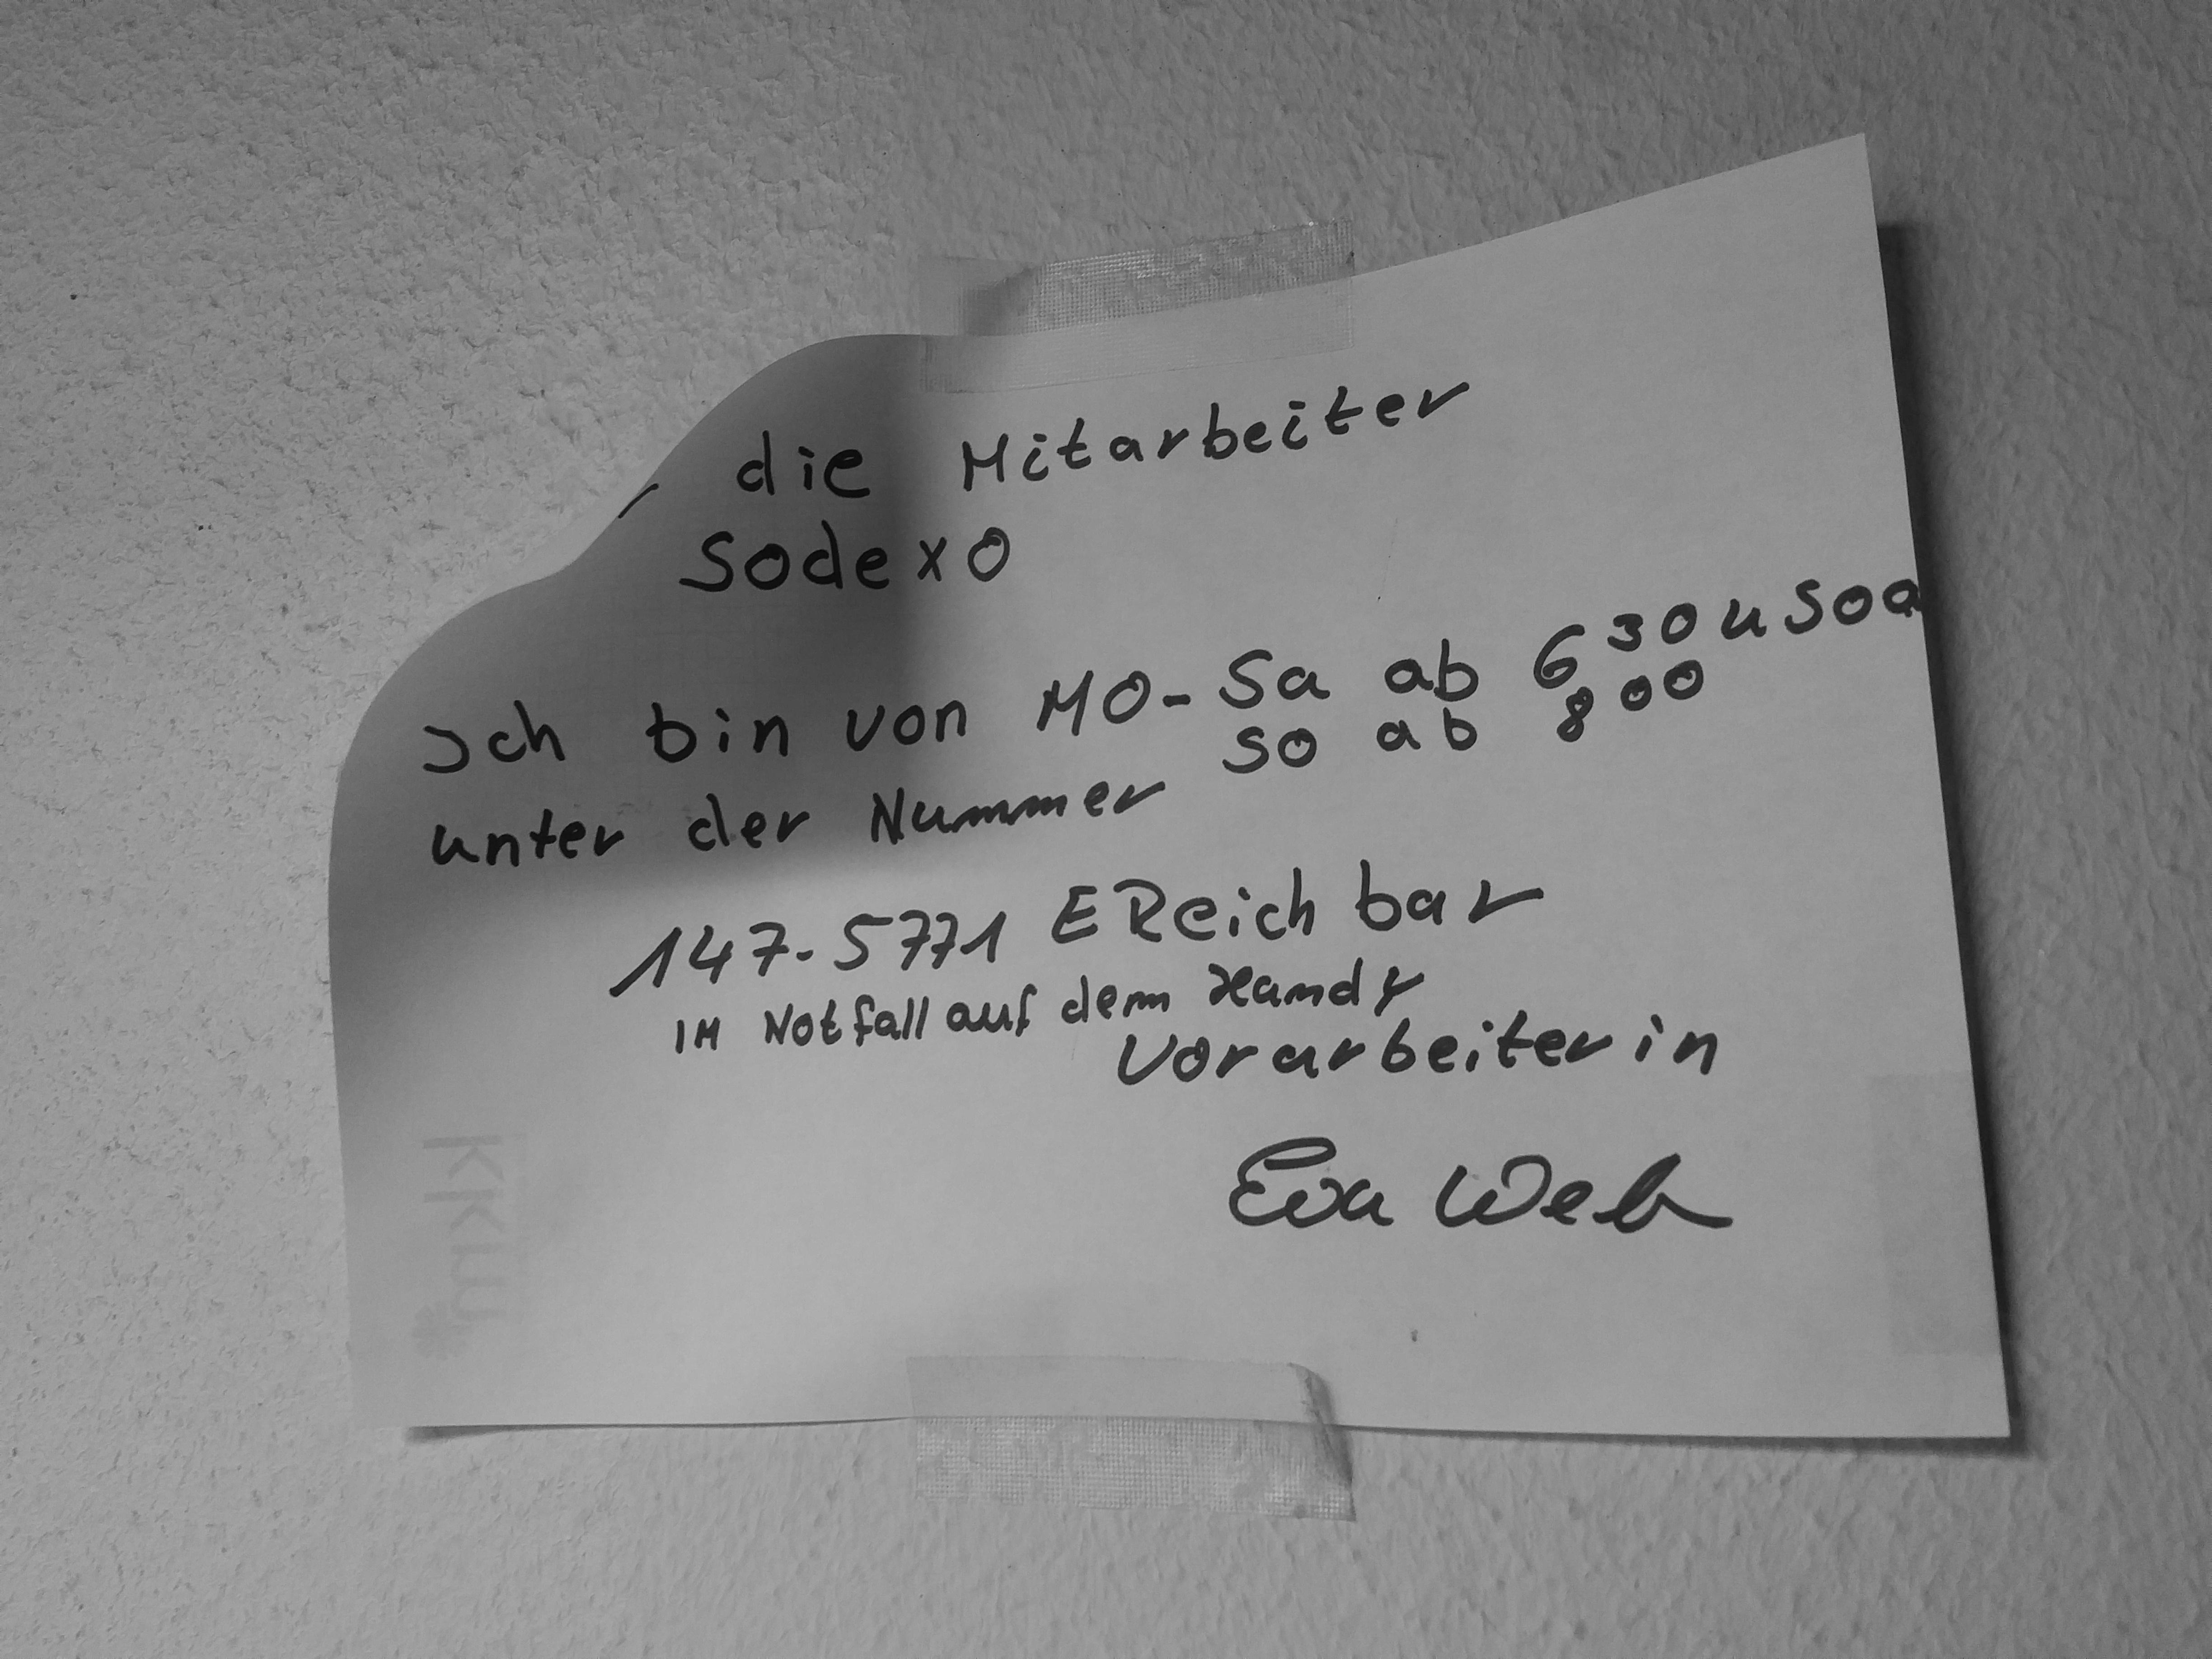 die Mitarbeiter
Sodexo
Ich bin von MO-Sa ab 6 30 u Soa
so ab 8 00
unter der Nummer
147-5771 EReichbar
IM Notfall auf dem Handy
Vorarbeiterin
Eva Web